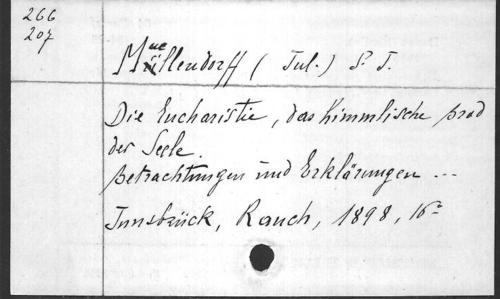 266
207
Muellendorff (Jul.) S. J.
Die Eucharistie, das himmlische Brod
der Seele.
Betrachtungen und Erklärungen ...
Innsbrück, Rauch, 1898, 16º